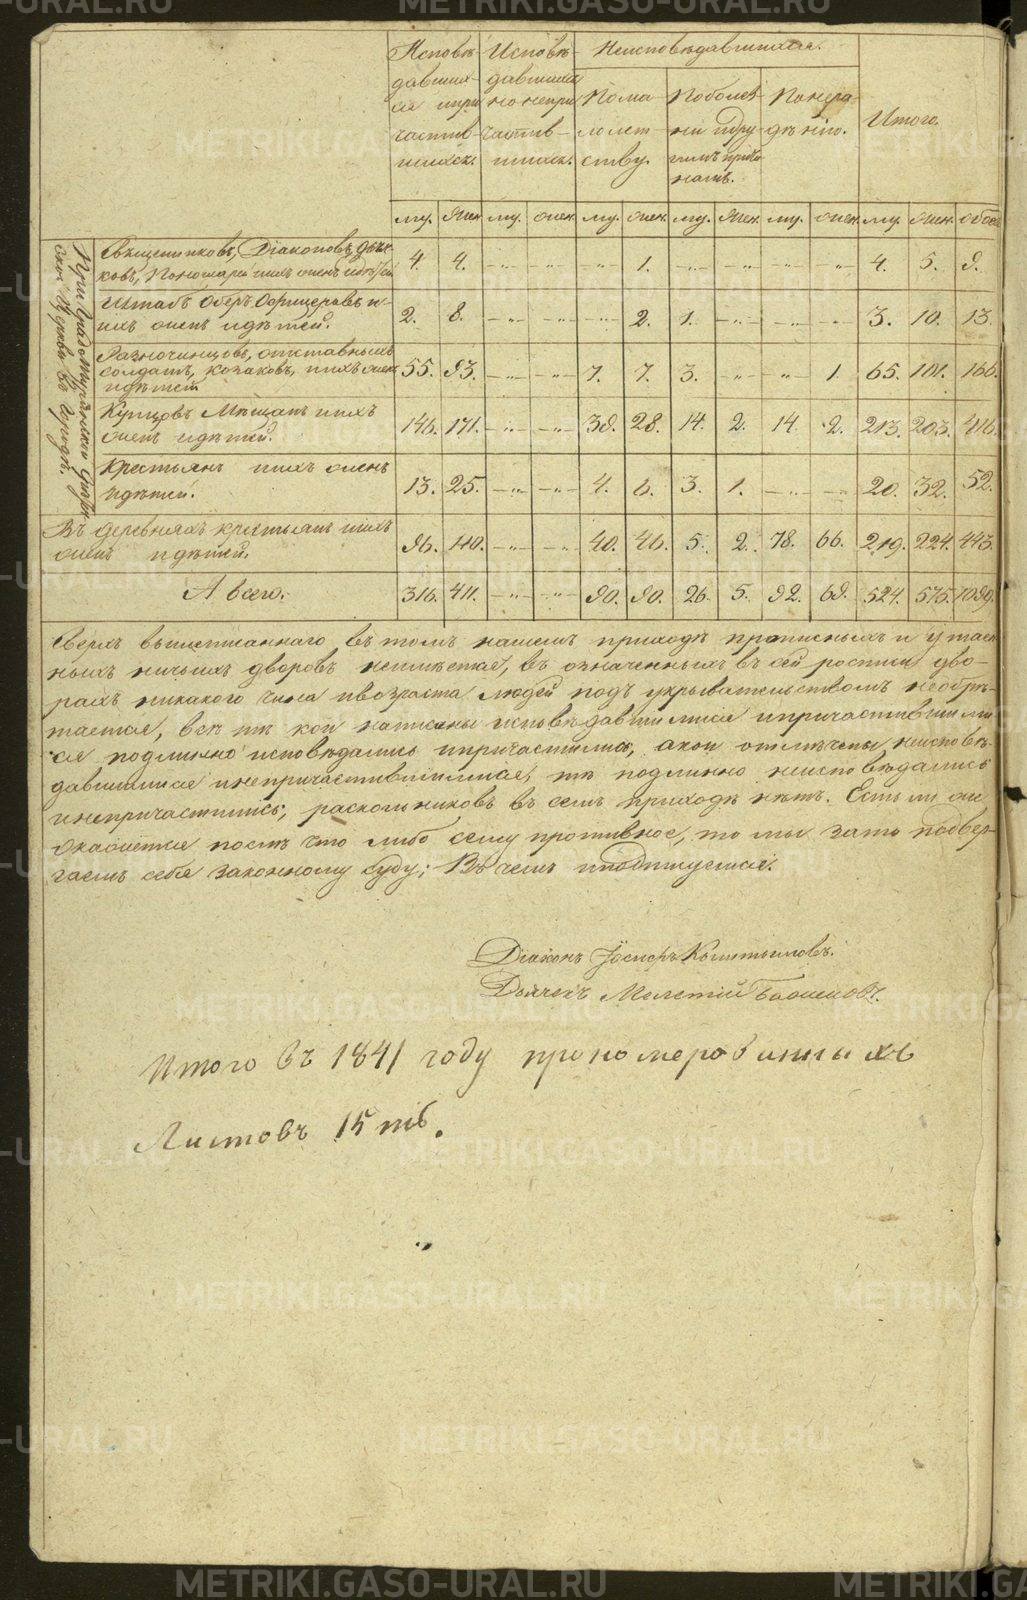 METRIKI.GASO-URAL.RU
Исповѣ-
давших-
ся и при
частив
шихся.
Исповѣ-
давшихся
но непри
частив-
шихся.
Неисповѣдавшихся.
Помалолетству.
По болез-
ни и дру-
гимъ причи-
намъ.
По нера-
дѣнію.
Итого.
му. жен. му. жен. му. жен. му. жен. му. жен. му. жен. обоего
При Градо
ской Церкви въ Городѣ.
Священниковъ, Діаконовъ, дьяч-
ковъ, Пономарей и ихъ женъ и дѣтей
4. 4. -„- -„- „ 1. -„- -„- „ „ 4. 5. 9.
Штабъ Оберъ Офицеровъ и
ихъ женъ и дѣтей.
2. 8. -„- -„- -„- 2. 1. -„- -„- -„- 3. 10. 13.
Разночинцовъ, отставныхъ
солдатъ, козаковъ, и ихъ женъ
и дѣтей
55. 93. -„- -„- 7. 7. 3. „ „ 1. 65. 101. 166.
Купцовъ Мѣщанъ и ихъ
женъ и дѣтей.
146. 171. -„- -„- 39. 28. 14. 2. 14. 2. 213. 203. 416.
Крестьянъ и ихъ женъ
и дѣтей.
13. 25. -„- -„- 4. 6. 3. 1. -„- -„- 20. 32. 52.
Въ деревняхъ крестьянъ и ихъ
женъ и дѣтей.
96. 110. -„- -„- 40. 46. 5. 2. 78. 66. 219. 224. 443.
А всего.
316. 411. -„- -„- 90. 90. 26. 5. 92. 69. 524. 575. 1099.
Сверхъ вышеписаннаго въ томъ нашемъ приходѣ прописныхъ и утаен
ныхъ ничьихъ дворовъ неимѣется, въ означенныхъ въ сей росписи дво-
рахъ никакого чина и возраста людей подъ укрывательствомъ необрѣ-
тается, всѣ тѣ кои написаны исповѣдавшимися и причастившими
ся подлинно исповѣдались и причастились, а кои отмѣчены неисповѣ-
давшимися и непричастившимися, тѣ подлинно неисповѣдались
и непричастились; раскольниковъ въ семъ приходѣ нѣтъ. Есть ли же
окажется послѣ что либо сему противное, то мы за то подвер-
гаемъ себя законному суду; въ чемъ и подпишемся.
Діаконъ Іосифъ
Дьячекъ Мелетій
Итого въ 1841 году прономерованныхъ
Листовъ 15ть.